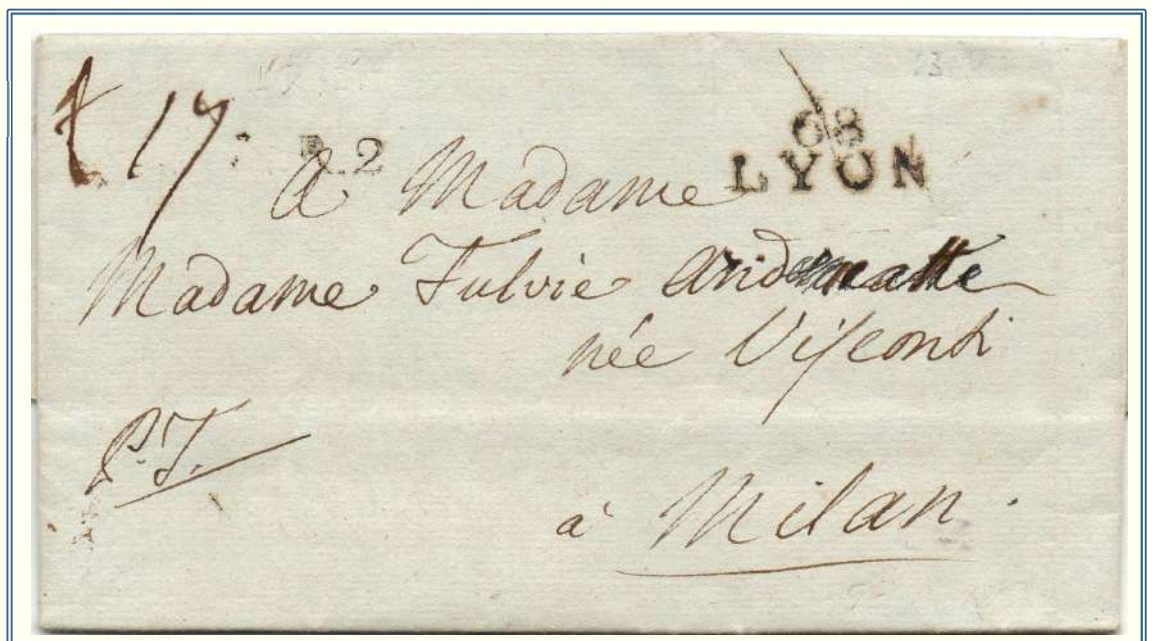 17
R.2
68
LYON
A Madame
Madame Fulvie
née Visconti
P.J.
à Milan.